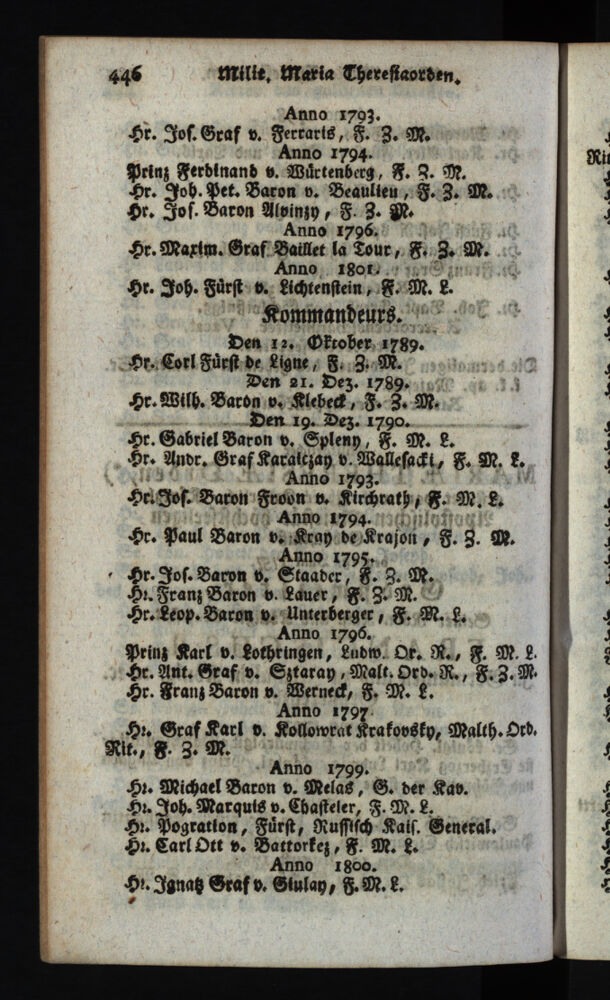 446 Milit. Maria Theresiaorden.
Anno 1793.
Hr. Jos. Graf v. Ferraris, F. Z. M.
Anno 1794.
Prinz Ferdinand v. Würtenberg, F. Z. M.
Hr. Joh. Pet. Baron v. Beaulieu, F. Z. M.
Hr. Jos. Baron Alvinzy, F. Z. M.
Anno 1796.
Hr. Maxim. Graf Baillet la Tour, F. Z. M.
Anno 1801.
Hr. Joh. Fürst v. Lichtenstein, F. M. L.
Kommandeurs.
Den 12. Oktober 1789.
Hr. Corl Fürst de Ligne, F. Z. M.
Den 21. Dez. 1789.
Hr. Wilh. Baron v. Klebeck, F. Z. M.
Den 19. Dez. 1790.
Hr. Gabriel Baron v. Spleny, F. M. L.
Hr. Andr. Graf Karaiczay v. Wallesacki, F. M. L.
Anno 1793.
Hr. Jos. Baron Froon v. Kirchrath, F. M. L.
Anno 1794.
Hr. Paul Baron v. Kray de Krajon, F. Z. M.
Anno 1795.
Hr. Jos. Baron v. Staader, F. Z. M.
Hr. Franz Baron v. Lauer, F. Z. M.
Hr. Leop. Baron v. Unterberger, F. M. L.
Anno 1796.
Prinz Karl v. Lothringen, Ludw. Or. R., F. M. L.
Hr. Ant. Graf v. Sztaray, Malt. Ord. R., F. Z. M.
Hr. Franz Baron v. Werneck, F. M. L.
Anno 1797.
Hr. Graf Karl v. Kollowrat Krakovsky, Malth. Ord.
Rit., F. Z. M.
Anno 1799.
Hr. Michael Baron v. Melas, G. der Kav.
Hr. Joh. Marquis v. Chasteler, F. M. L.
Hr. Pogration, Fürst, Russisch Kais. General.
Hr. Carl Ott v. Battorkez, F. M. L.
Anno 1800.
Hr. Ignatz Graf v. Giulay, F. M. L.